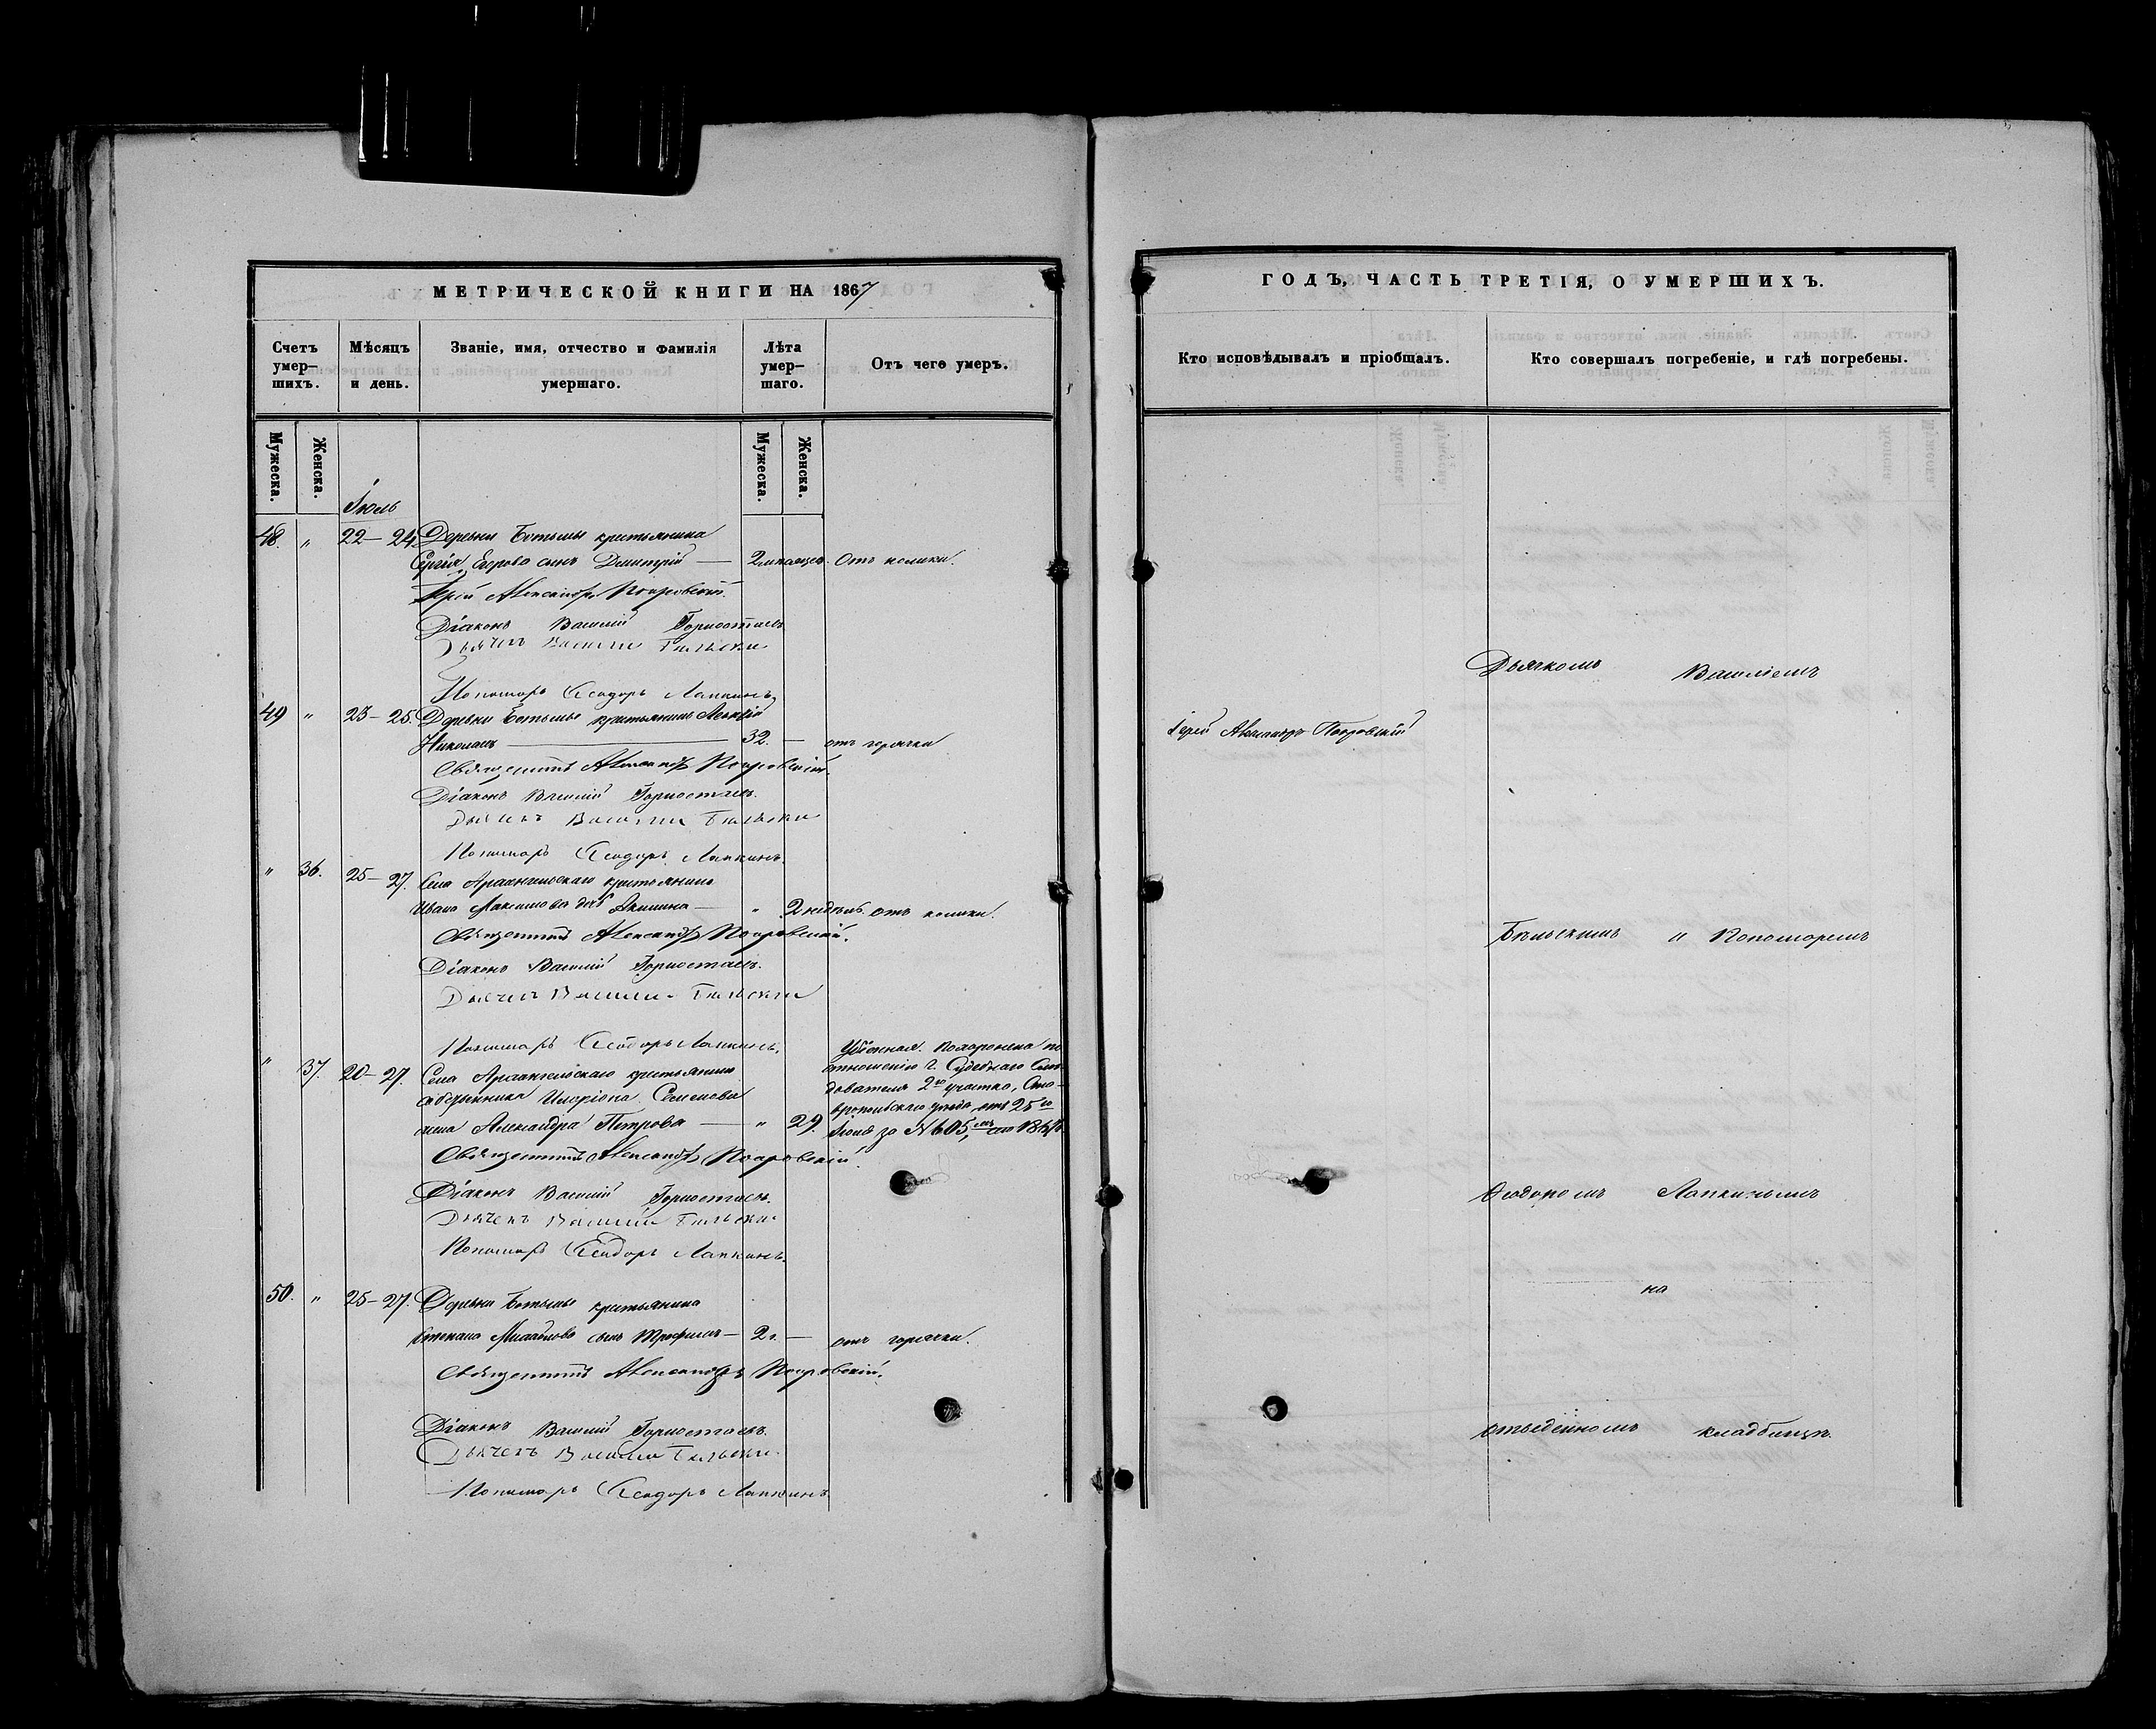 МЕТРИЧЕСКОЙ КНИГИ НА 1867
Счетъ умер-шихъ.
Мѣсяцъ и день.
Званіе, имя, отчество и фамилія умершаго.
Лѣта умер-шаго.
Отъ чего умеръ.
Мужеска.
Женска.
Мужеска.
Женска.
Іюль
48. " 22-24. Деревни крестьянина
Сергія Егорова сынъ Димитрій — 2 мѣсяцев. Отъ колики.
Іерей Александръ Покровскій.
Діаконъ Василій Горностаевъ
Дьячекъ Василій Бѣльскій
Пономарь Ѳеодоръ Лапкинъ
49 " 23-25. Деревни крестьянинъ
Николаевъ — 32. — отъ горячки
Священникъ Александръ Покровскій.
Діаконъ Василій Горностаевъ.
Дьячекъ Василій Бѣльскій
Пономарь Ѳеодоръ Лапкинъ.
" 36. 25-27. Села Архангельскаго крестьянина
Ивана Максимова дочь Акилина — " 2 недѣль. отъ колики.
Священникъ Александръ Покровскій.
Діаконъ Василій Горностаевъ.
Дьячекъ Василій Бѣльскій
Пономарь Ѳеодоръ Лапкинъ.
" 37. 20-27. Села Архангельскаго крестьянина
собственника Иларіона Семенова
жена Александра Петрова — " 29.
Убіенная. Похоронена по
отношенію Г. Судебнаго Слѣ-
дователя 2го участка, Став-
ропольскаго уѣзда отъ 25го
Іюля за № 605, 1867
Священникъ Александръ Покровскій.
Діаконъ Василій Горностаевъ.
Дьячекъ Василій Бѣльскій
Пономарь Ѳеодоръ Лапкинъ.
50. " 25-27. Деревни крестьянина
Степана Михайлова сынъ Трофимъ — 2 г. — отъ горячки.
Священникъ Александръ Покровскій.
Діаконъ Василій Горностаевъ.
Дьячекъ Василій Бѣльскій.
Пономарь Ѳеодоръ Лапкинъ
ГОДЪ, ЧАСТЬ ТРЕТІЯ, О УМЕРШИХЪ.
Кто исповѣдывалъ и пріобщалъ.
Кто совершалъ погребеніе, и гдѣ погребены.
Дьячкомъ Василіемъ
Іерей Александръ Покровскій
Бѣльскимъ и Пономаремъ
Ѳеодоромъ Лапкинымъ
на
отведенномъ кладбищѣ.